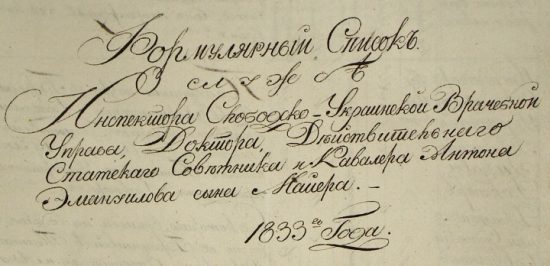 Формулярный Списокъ
службѣ
Инспектора Слободско-Украинской Врачебной
Управы, Доктора, Дѣйствительнаго
Статскаго Совѣтника и Кавалера Антона
Эмануилова сына Майера. –
1833го Года.